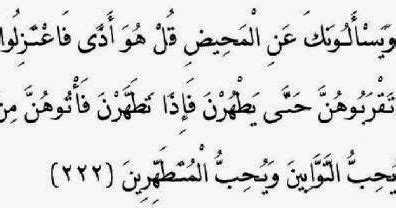 وَيَسْأَلُونَكَ عَنِ الْمَحِيضِ قُلْ هُوَ أَذًى فَاعْتَزِلُوا
تَقْرَبُوهُنَّ حَتَّى يَطْهُرْنَ فَإِذَا تَطَهَّرْنَ فَأْتُوهُنَّ مِنْ
يُحِبُّ التَّوَّابِينَ وَيُحِبُّ الْمُتَطَهِّرِينَ (٢٢٢)